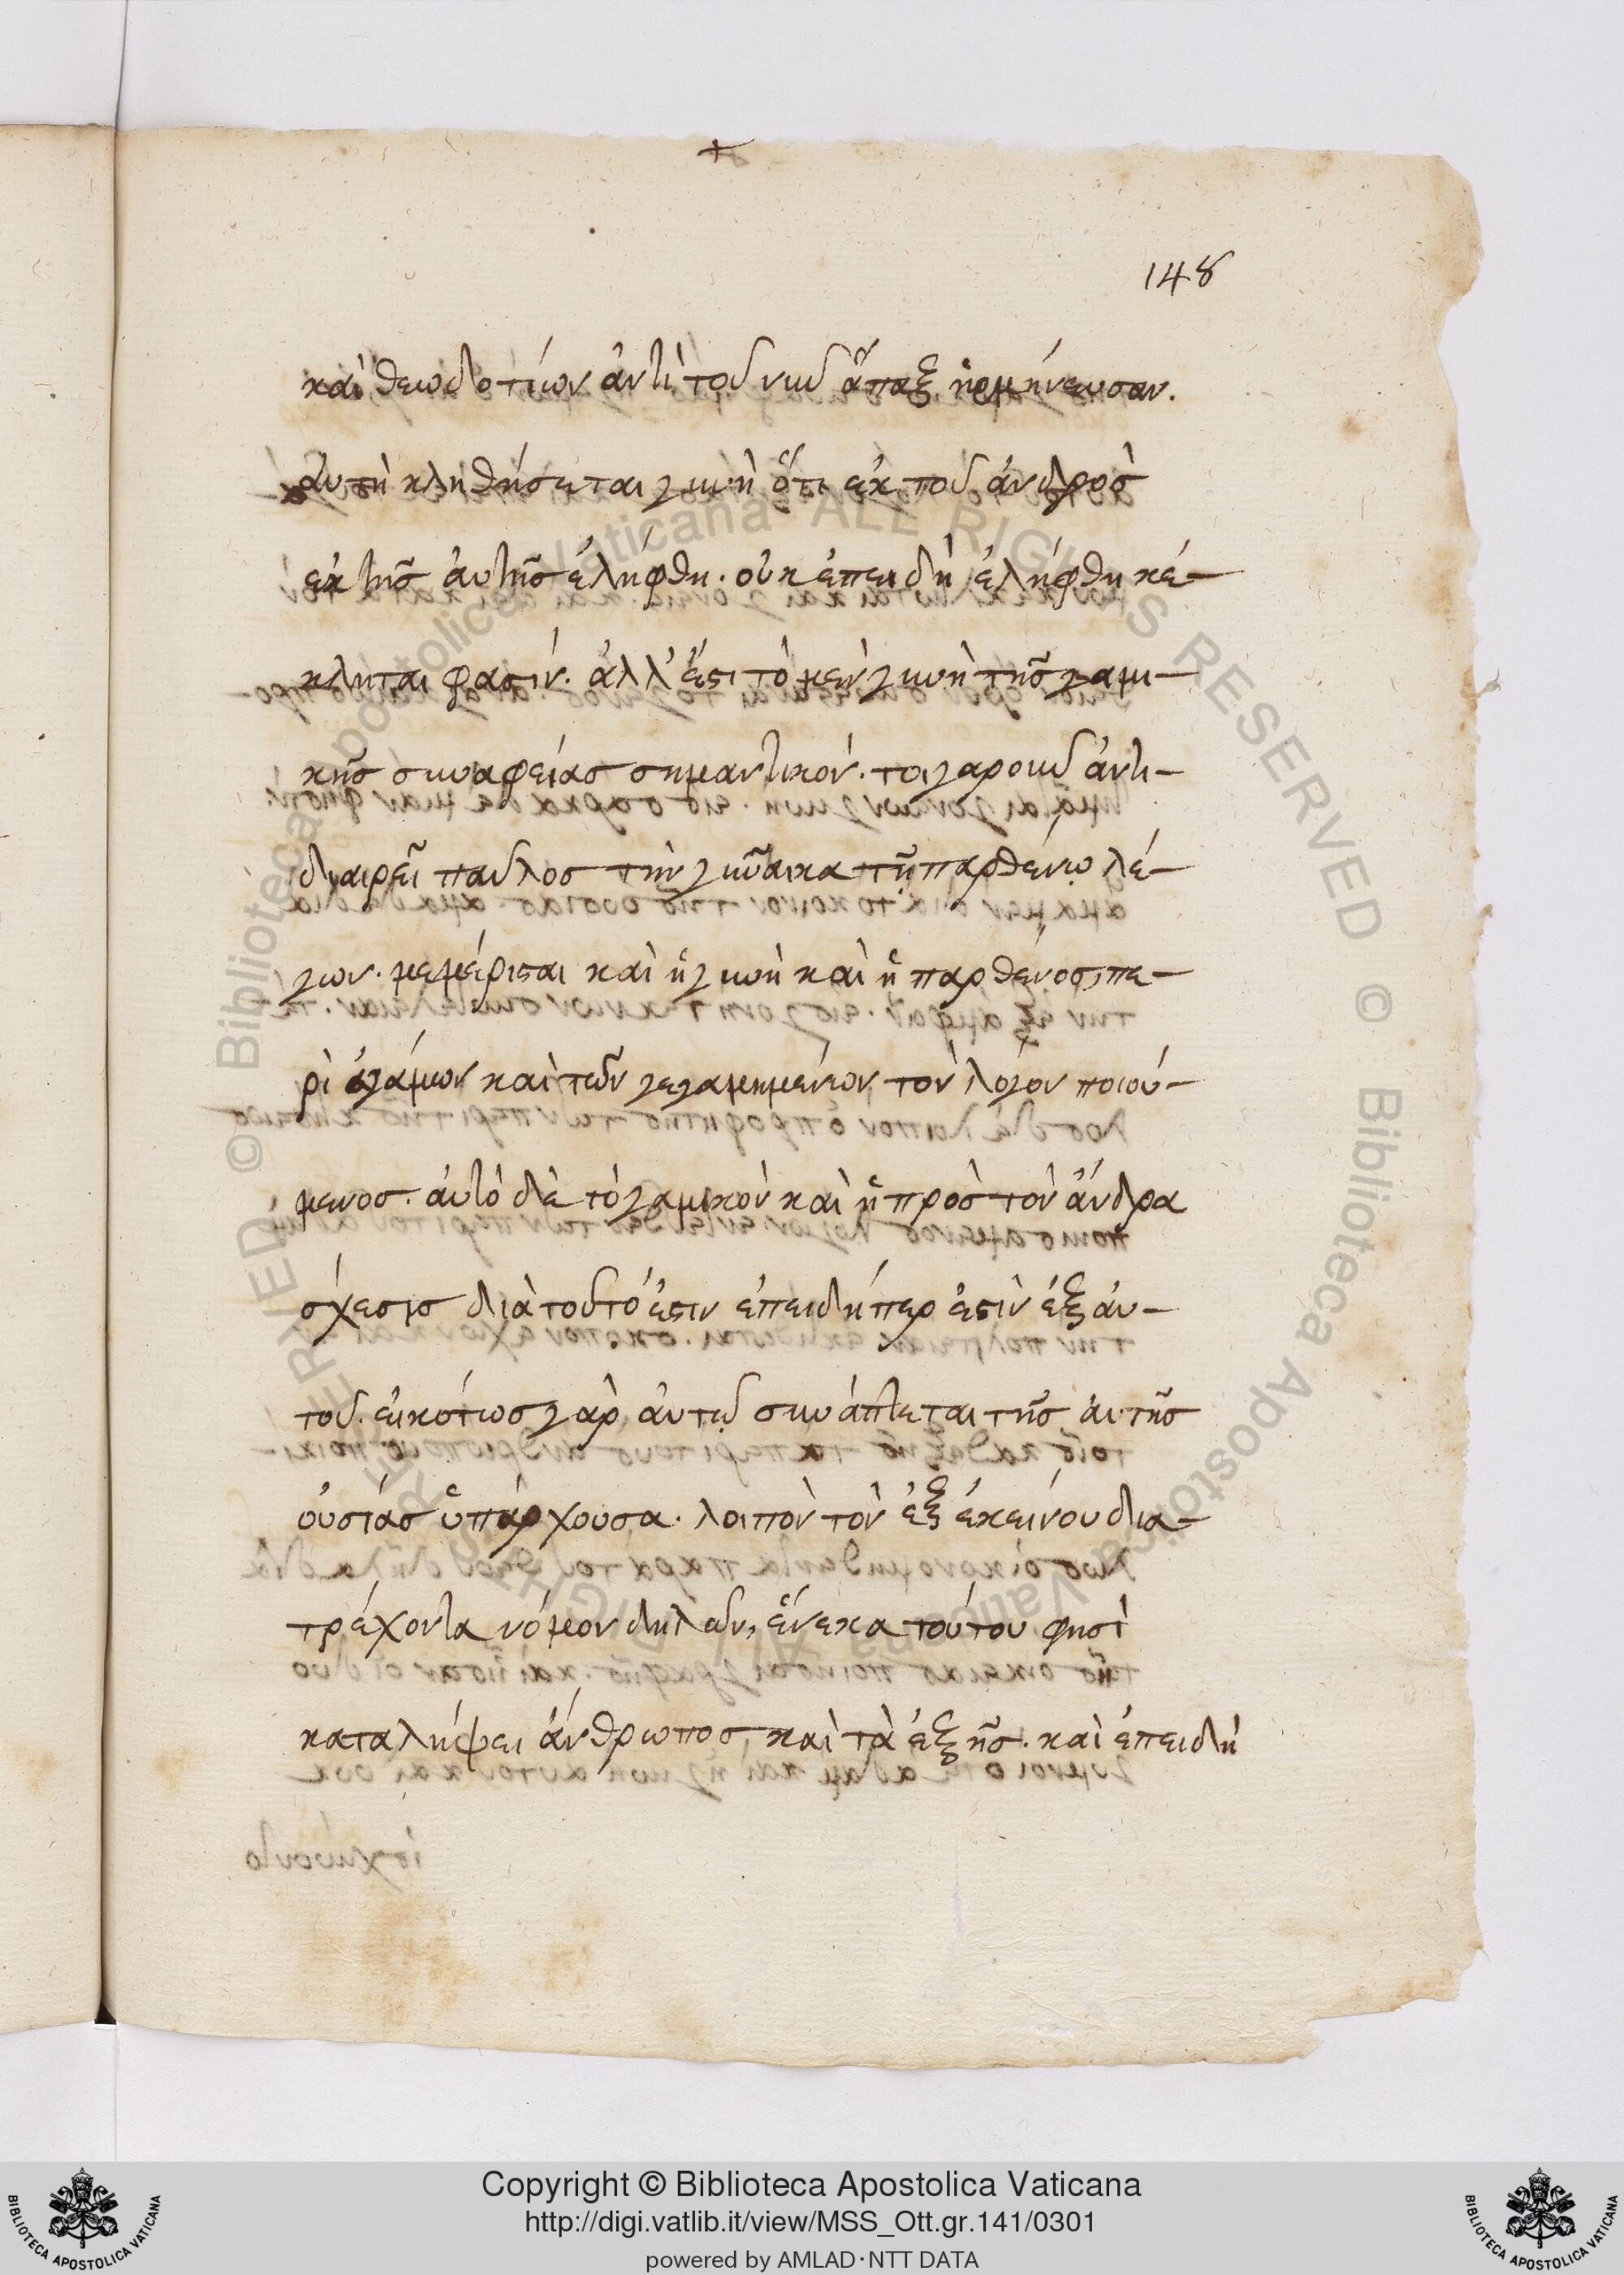 148
καὶ θεωδοτίων ἀντὶ τοῦ νῦ ἅπαξ ἡρμήνευσαν.
αὐτὴ κληθήσεται γυνὴ ὅτι ἐκ τοῦ ἀνδρὸς
ἐκ τῆς ἀυτῆς ἐλήφθη. οὐκ ἐπειδὴ ἐλήφθη κέ-
κληται φασίν. ἀλλ' ἔστι τὸ μὲν γυνὴ τῆς γαμι-
κῆς συναφείας σημαντικόν. τοιγαροῦν ἀντι-
διαιρεῖ παῦλος τὴν γυναῖκα τῇ παρθένῳ λέ-
γων. μεμέρισται καὶ ἡ γυνὴ καὶ ἡ παρθένος, πε-
ρὶ ἀγάμων καὶ τῶν γεγαμημένων τὸν λόγον ποιού-
μενος. ἀυτὸ δὲ τὸ γαμικὸν καὶ ἡ πρὸς τὸν ἄνδρα
σχέσις διὰ τοῦτό ἐστιν ἐπειδήπερ ἐστὶν ἐξ ἀυ-
τοῦ. εἰκότως γὰρ ἀυτῷ συνάπτεται τῆς ἀυτῆς
οὐσίας ὑπάρχουσα. λοιπὸν τὸν ἐξ ἐκείνου δια-
τρέχοντα νόμον δηλῶν, ἕνεκα τούτου φησὶ
καταλήψει ἄνθρωπος, καὶ τὰ ἑξῆς. καὶ ἐπειδὴ
Copyright © Biblioteca Apostolica Vaticana
http://digi.vatlib.it/view/MSS_Ott.gr.141/0301
powered by AMLAD·NTT DATA